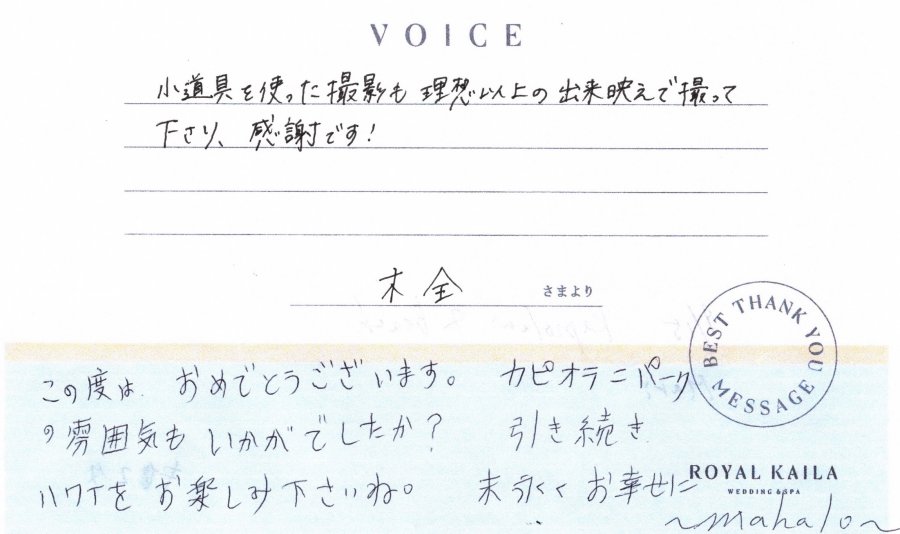 VOICE
小道具を使った撮影も理想以上の出来映えで撮って
下さり、感謝です！
木全 さまより
BEST THANK YOU MESSAGE
この度は おめでとうございます。 カピオラニパーク
の雰囲気も いかがでしたか？ 引き続き
ハワイを お楽しみ下さいね。 末永く お幸せに
ROYAL KAILA
WEDDING & SPA
～mahalo～